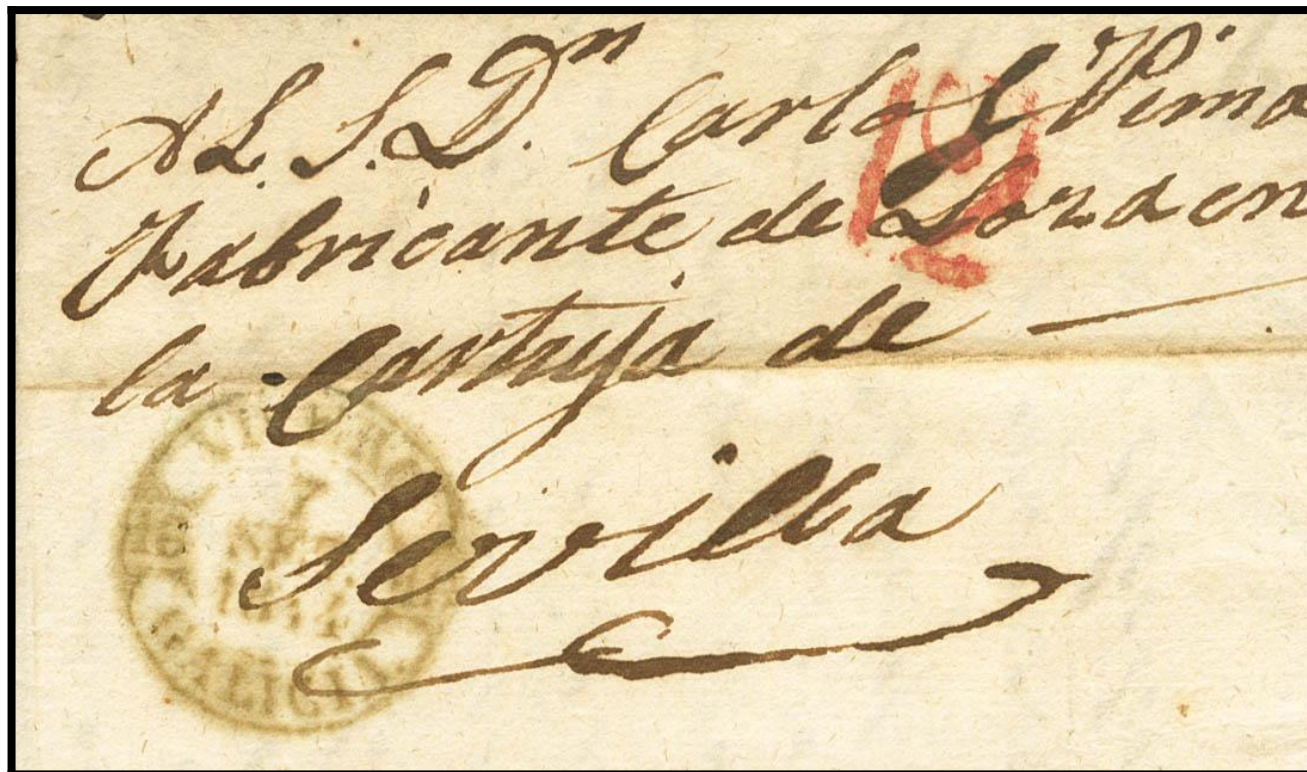 AL. S. Dn. Carlos Pima
Fabricante de Loza en
la Cartuja de
Sevilla
GALICIA.